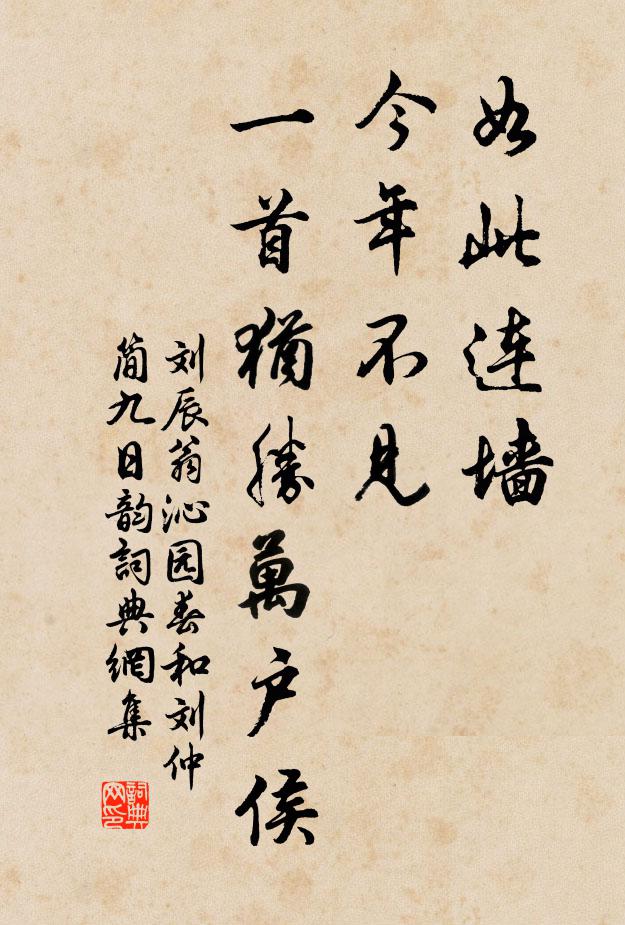 如此连墙
今年不见
一首猶勝萬户侯
刘辰翁沁园春和刘仲
简九日韵詞典網集
詞典网印